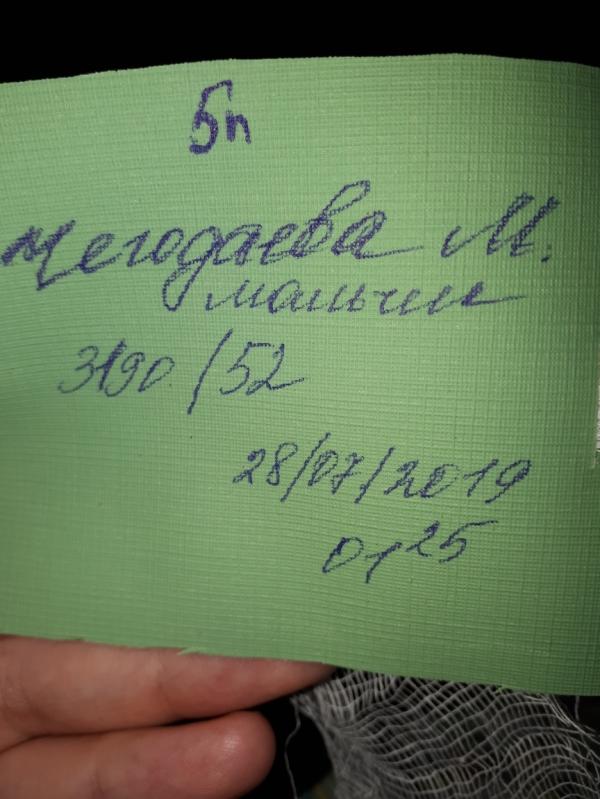 5п
Чегодаева М.
мальчик
3190/52
28/07/2019
01 25